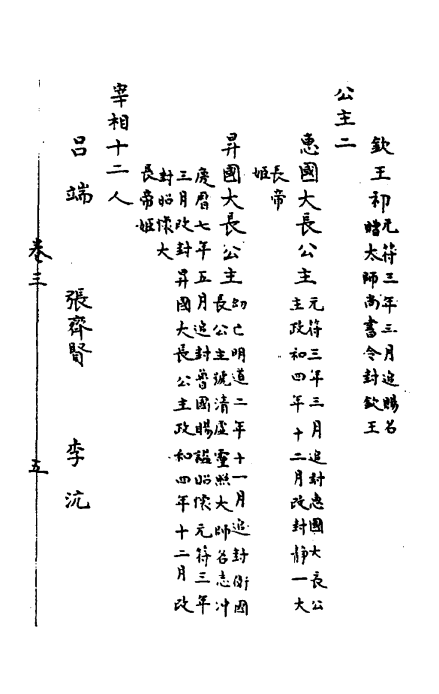 欽王初元符三年三月追賜名
贈太師尚書令封欽王
公主二
惠國大長公主元符三年三月追封惠國大長公
主政和四年十二月改封靜一大
長帝
姬
昇國大長公主幼亡明道二年十一月追封衛國
長公主號清虛靈照大師名志冲
慶曆七年五月追封魯國賜諡昭懷元符三年
三月改封昇國大長公主政和四年十二月改
封昭懷大
長帝姬
宰相十二人
呂端 張齊賢 李沆
卷三 五